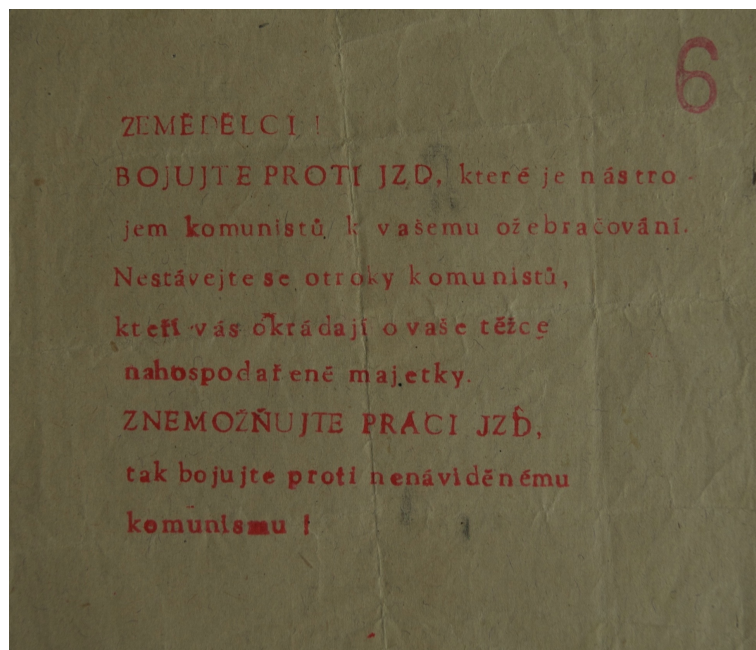 6
ZEMĚDĚLCI !
BOJUJTE PROTI JZD, které je nástro-
jem komunistů k vašemu ožebračování.
Nestávejte se otroky komunistů,
kteří vás okrádají o vaše těžce
nahospodařené majetky.
ZNEMOŽŇUJTE PRÁCI JZD,
tak bojujte proti nenáviděnému
komunismu !